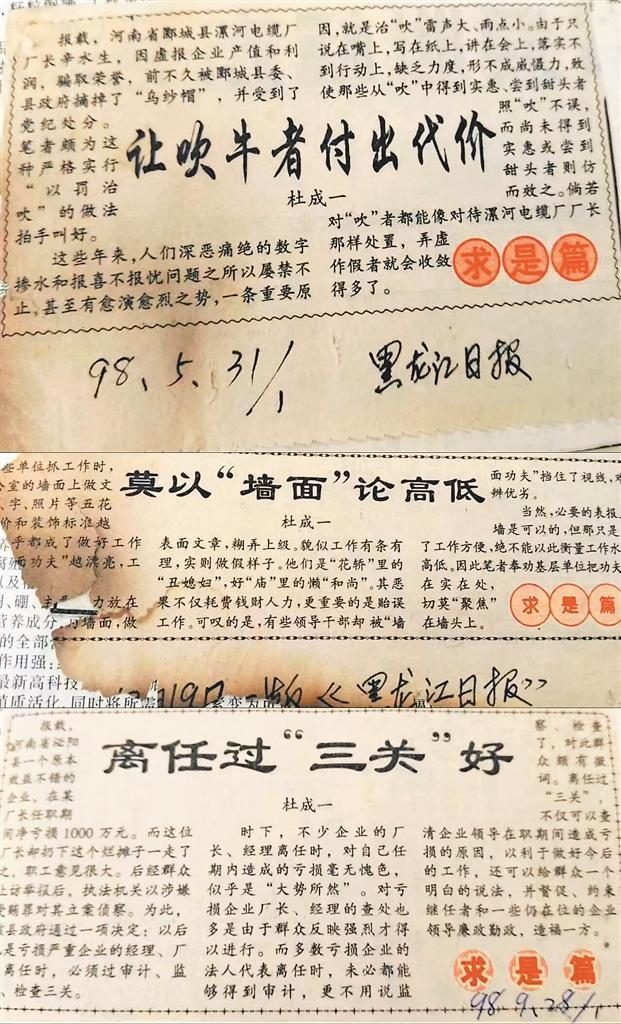 让吹牛者付出代价
杜成一
报载，河南省郾城县漯河电缆厂
厂长辛水生，因虚报企业产值和利
润，骗取荣誉，前不久被郾城县委、
县政府摘掉了“乌纱帽”，并受到了
党纪处分。
笔者颇为这
种严格实行
“以罚治
吹”的做法
拍手叫好。
这些年来，人们深恶痛绝的数字
掺水和报喜不报忧问题之所以屡禁不
止，甚至有愈演愈烈之势，一条重要原
因，就是治“吹”雷声大、雨点小。由于只
说在嘴上，写在纸上，讲在会上，落实不
到行动上，缺乏力度，形不成威慑力，致
使那些从“吹”中得到实惠、尝到甜头者
照“吹”不误，
而尚未得到
实惠或尝到
甜头者则仿
而效之。倘若
对“吹”者都能像对待漯河电缆厂厂长
那样处置，弄虚
作假者就会收敛
得多了。
求是篇
98.5.31/1 黑龙江日报
莫以“墙面”论高低
杜成一
些单位抓工作时，
室的墙面上做文
字、照片等五花
价和装饰标准越
乎都成了做好工作
面功夫”越漂亮，工
力放在
墙面，做
表面文章，糊弄上级。貌似工作有条有
理，实则做假样子。他们是“花轿”里的
“丑媳妇”，好“庙”里的懒“和尚”。其恶
果不仅耗费钱财人力，更重要的是贻误
工作。可叹的是，有些领导干部却被“墙
面功夫”挡住了视线，难
辨优劣。
当然，必要的表报上
墙是可以的，但那只是为
了工作方便，绝不能以此衡量工作水
高低。因此笔者奉劝基层单位把功夫
在实在处，
切莫“聚焦”
在墙头上。
求是篇
营养成分
的全部
作用强：
最新高科技
质活化，同时将所需
月19日一版《黑龙江日报》
离任过“三关”好
杜成一
报载，
河南省泌阳
县一个原本
效益不错的
企业，在某
厂长任职期
间净亏损1000万元。而这位
厂长却扔下这个烂摊子一走了
之，职工意见很大。后经群众
上访举报后，执法机关以涉嫌
受贿罪对其立案侦察。为此，
该县政府通过一项决定：以后
凡是亏损严重企业的经理、厂
离任时，必须过审计、监
、检查三关。
时下，不少企业的厂
长、经理离任时，对自己任
期内造成的亏损毫无愧色，
似乎是“大势所然”。对亏
损企业厂长、经理的查处也
多是由于群众反映强烈才得
以进行。而多数亏损企业的
法人代表离任时，未必都能
够得到审计，更不用说监
察、检查
了，对此群
众颇有微
词。离任过
“三关”，
不仅可以查
清企业领导在职期间造成亏
损的原因，以利于做好今后
的工作，还可以给群众一个
明白的说法，并督促、约束
继任者和一些仍在位的企业
领导廉政勤政，造福一方。
求是篇
98.9.28/1